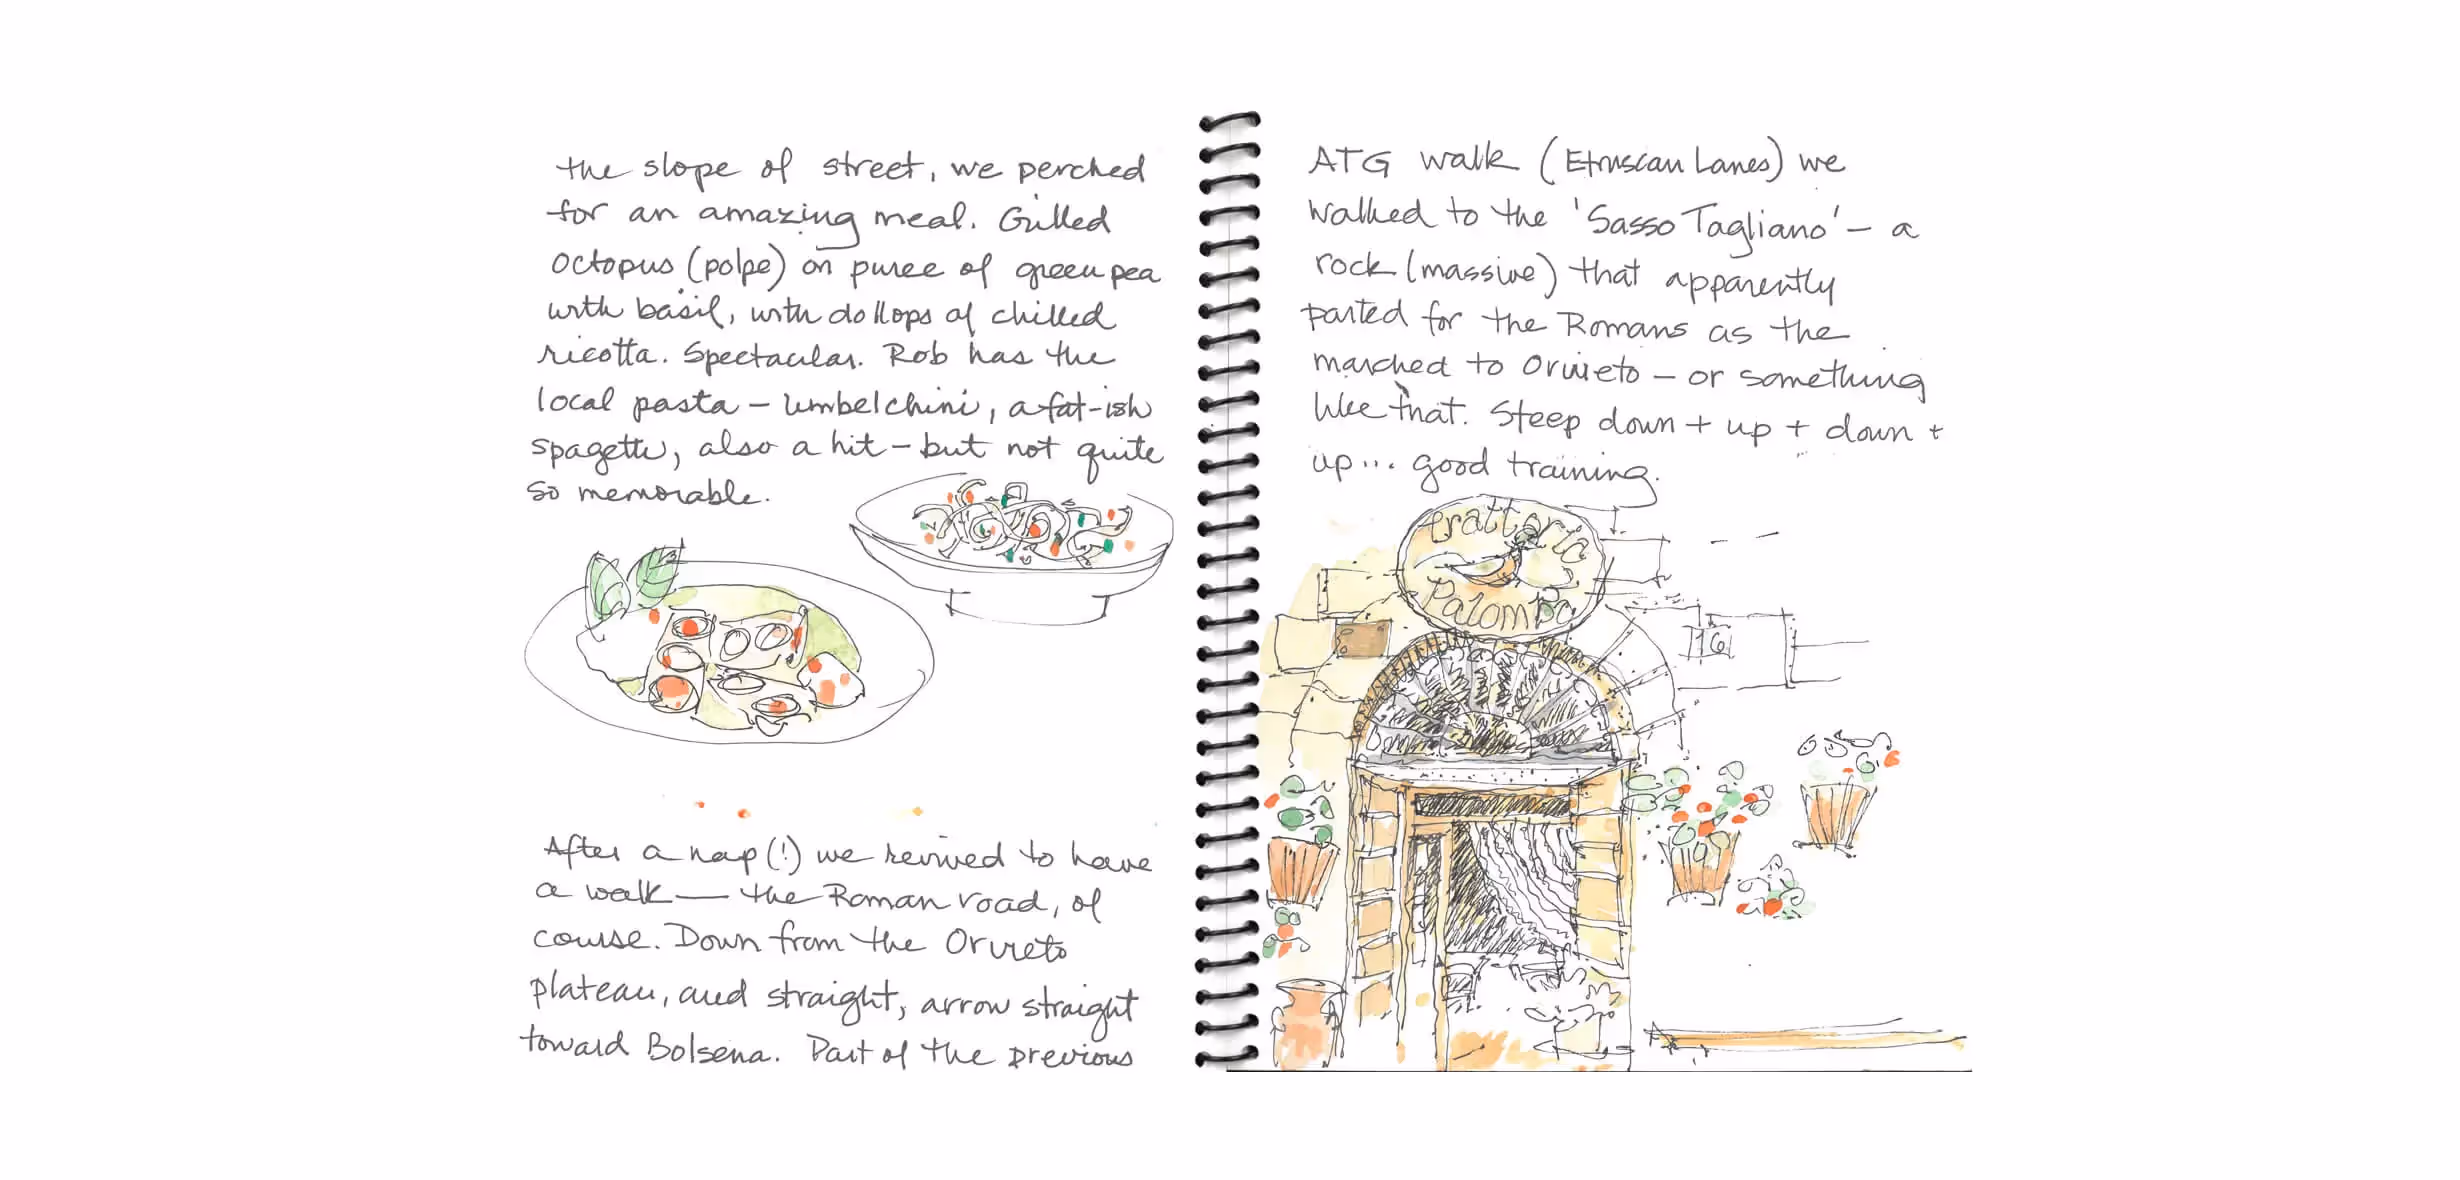 the slope of street, we perched
for an amazing meal. Grilled
octopus (polpe) on puree of green pea
with basil, with dollops of chilled
ricotta. Spectacular. Rob has the
local pasta – umbelchini, a fat-ish
spagetti, also a hit – but not quite
so memorable.
After a nap (!) we revived to have
a walk — the Roman road, of
course. Down from the Orvieto
plateau, and straight, arrow straight
toward Bolsena. Part of the previous
ATG walk (Etruscan Lanes) we
walked to the 'Sasso Tagliano' – a
rock (massive) that apparently
parted for the Romans as the
marched to Orvieto – or something
like that. Steep down + up + down +
up... good training.
trattoria
Palomba
16